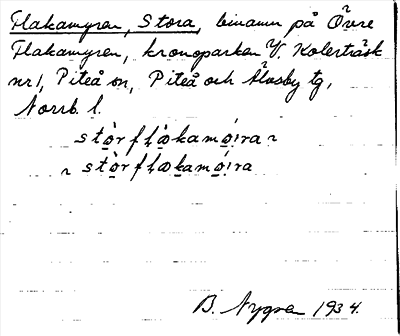 Flakamyren, Stora, binamn på Övre
Flakamyren, kronoparken V. Kolerträsk
nr 1, Piteå sn, Piteå och Älvsby tg,
Norrb. l.
stòrflakamó̤i̭ra ~
~ stòrflakamó̤i̭ra
B. Nygren 1934.